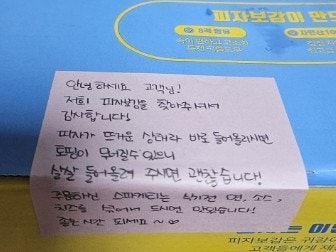 피자보감이 만드
안녕하세요 고객님!
저희 피자보감을 찾아주셔서
감사합니다!
피자가 뜨거운 상태라 바로 들어올리시면
토핑이 무너질수 있으니
살살 들어올려 주시면 괜찮습니다!
주문하신 스파게티는 식기전 면, 소스,
치즈를 섞어서 드시면 맛있습니다!
좋은 시간 되세요~♡
피자보감은 귀
고객들에게 제